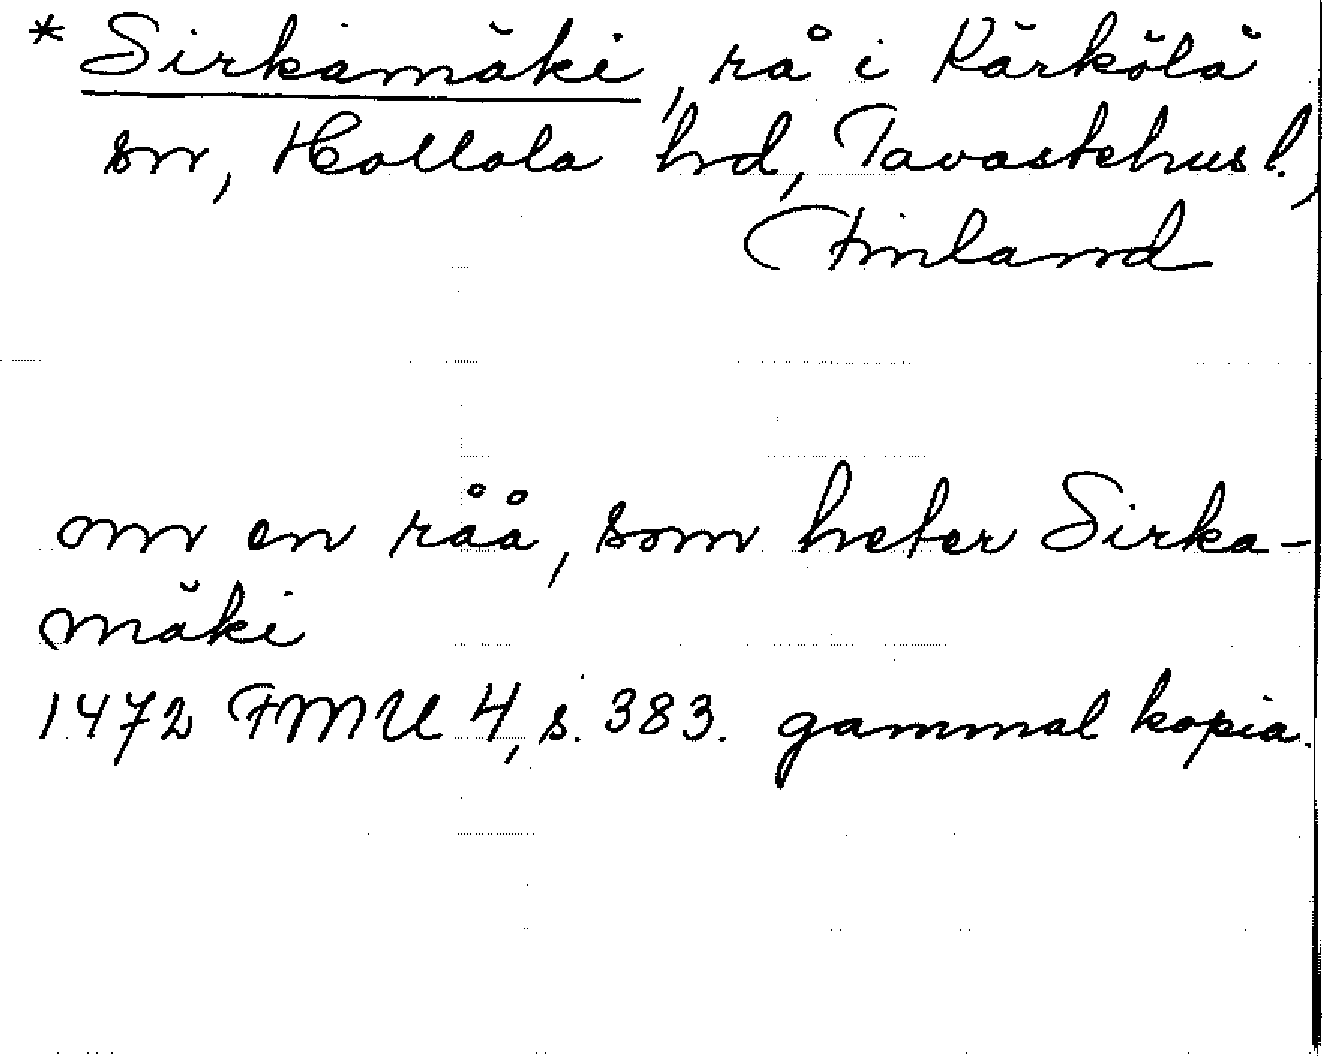 * Sirkamäki, rå i Kärkölä
sn, Hollola hd, Tavastehus l.,
Finland
om en råå, som heter Sirka-
mäki
1472 FMU 4, s. 383. gammal kopia.